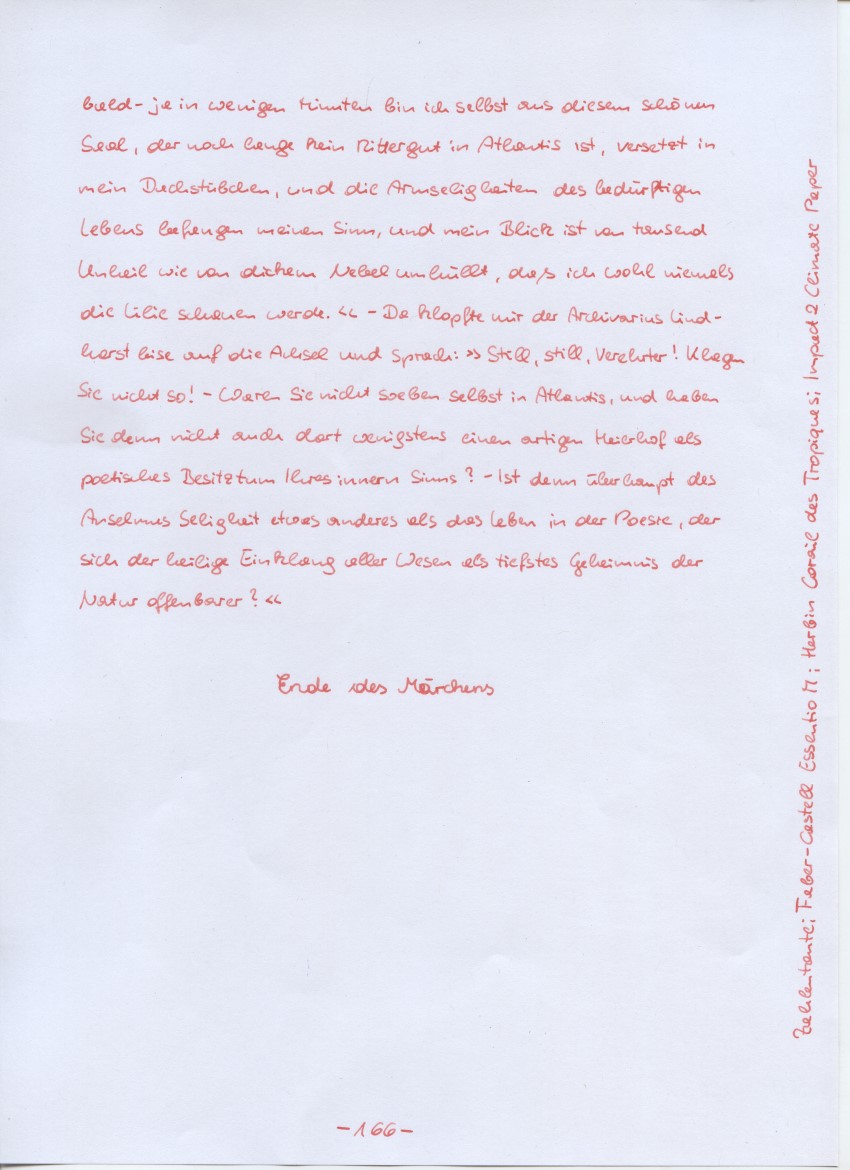 bald - ja in wenigen Minuten bin ich selbst aus diesem schönen
Saal, der noch lange kein Rittergut in Atlantis ist, versetzt in
mein Dachstübchen, und die Armseligkeiten des bedürftigen
Lebens befangen meinen Sinn, und mein Blick ist von tausend
Unheil wie von dickem Nebel umhüllt, daß ich wohl niemals
die Lilie schauen werde.« - Da klopfte mir der Archivarius Lind-
horst leise auf die Achsel und sprach: »Still, still, Verehrter! Klagen
Sie nicht so! - Waren Sie nicht soeben selbst in Atlantis, und haben
Sie denn nicht auch dort wenigstens einen artigen Meierhof als
poetisches Besitztum Ihres innern Sinns? - Ist denn überhaupt des
Anselmus Seligkeit etwas anderes als das Leben in der Poesie, der
sich der heilige Einklang aller Wesen als tiefstes Geheimnis der
Natur offenbaret?«
Ende des Märchens
Zahlentante; Faber-Castell Essentio M; Herbin Corail des Tropiques; Impact 2 Climate Paper
-166-